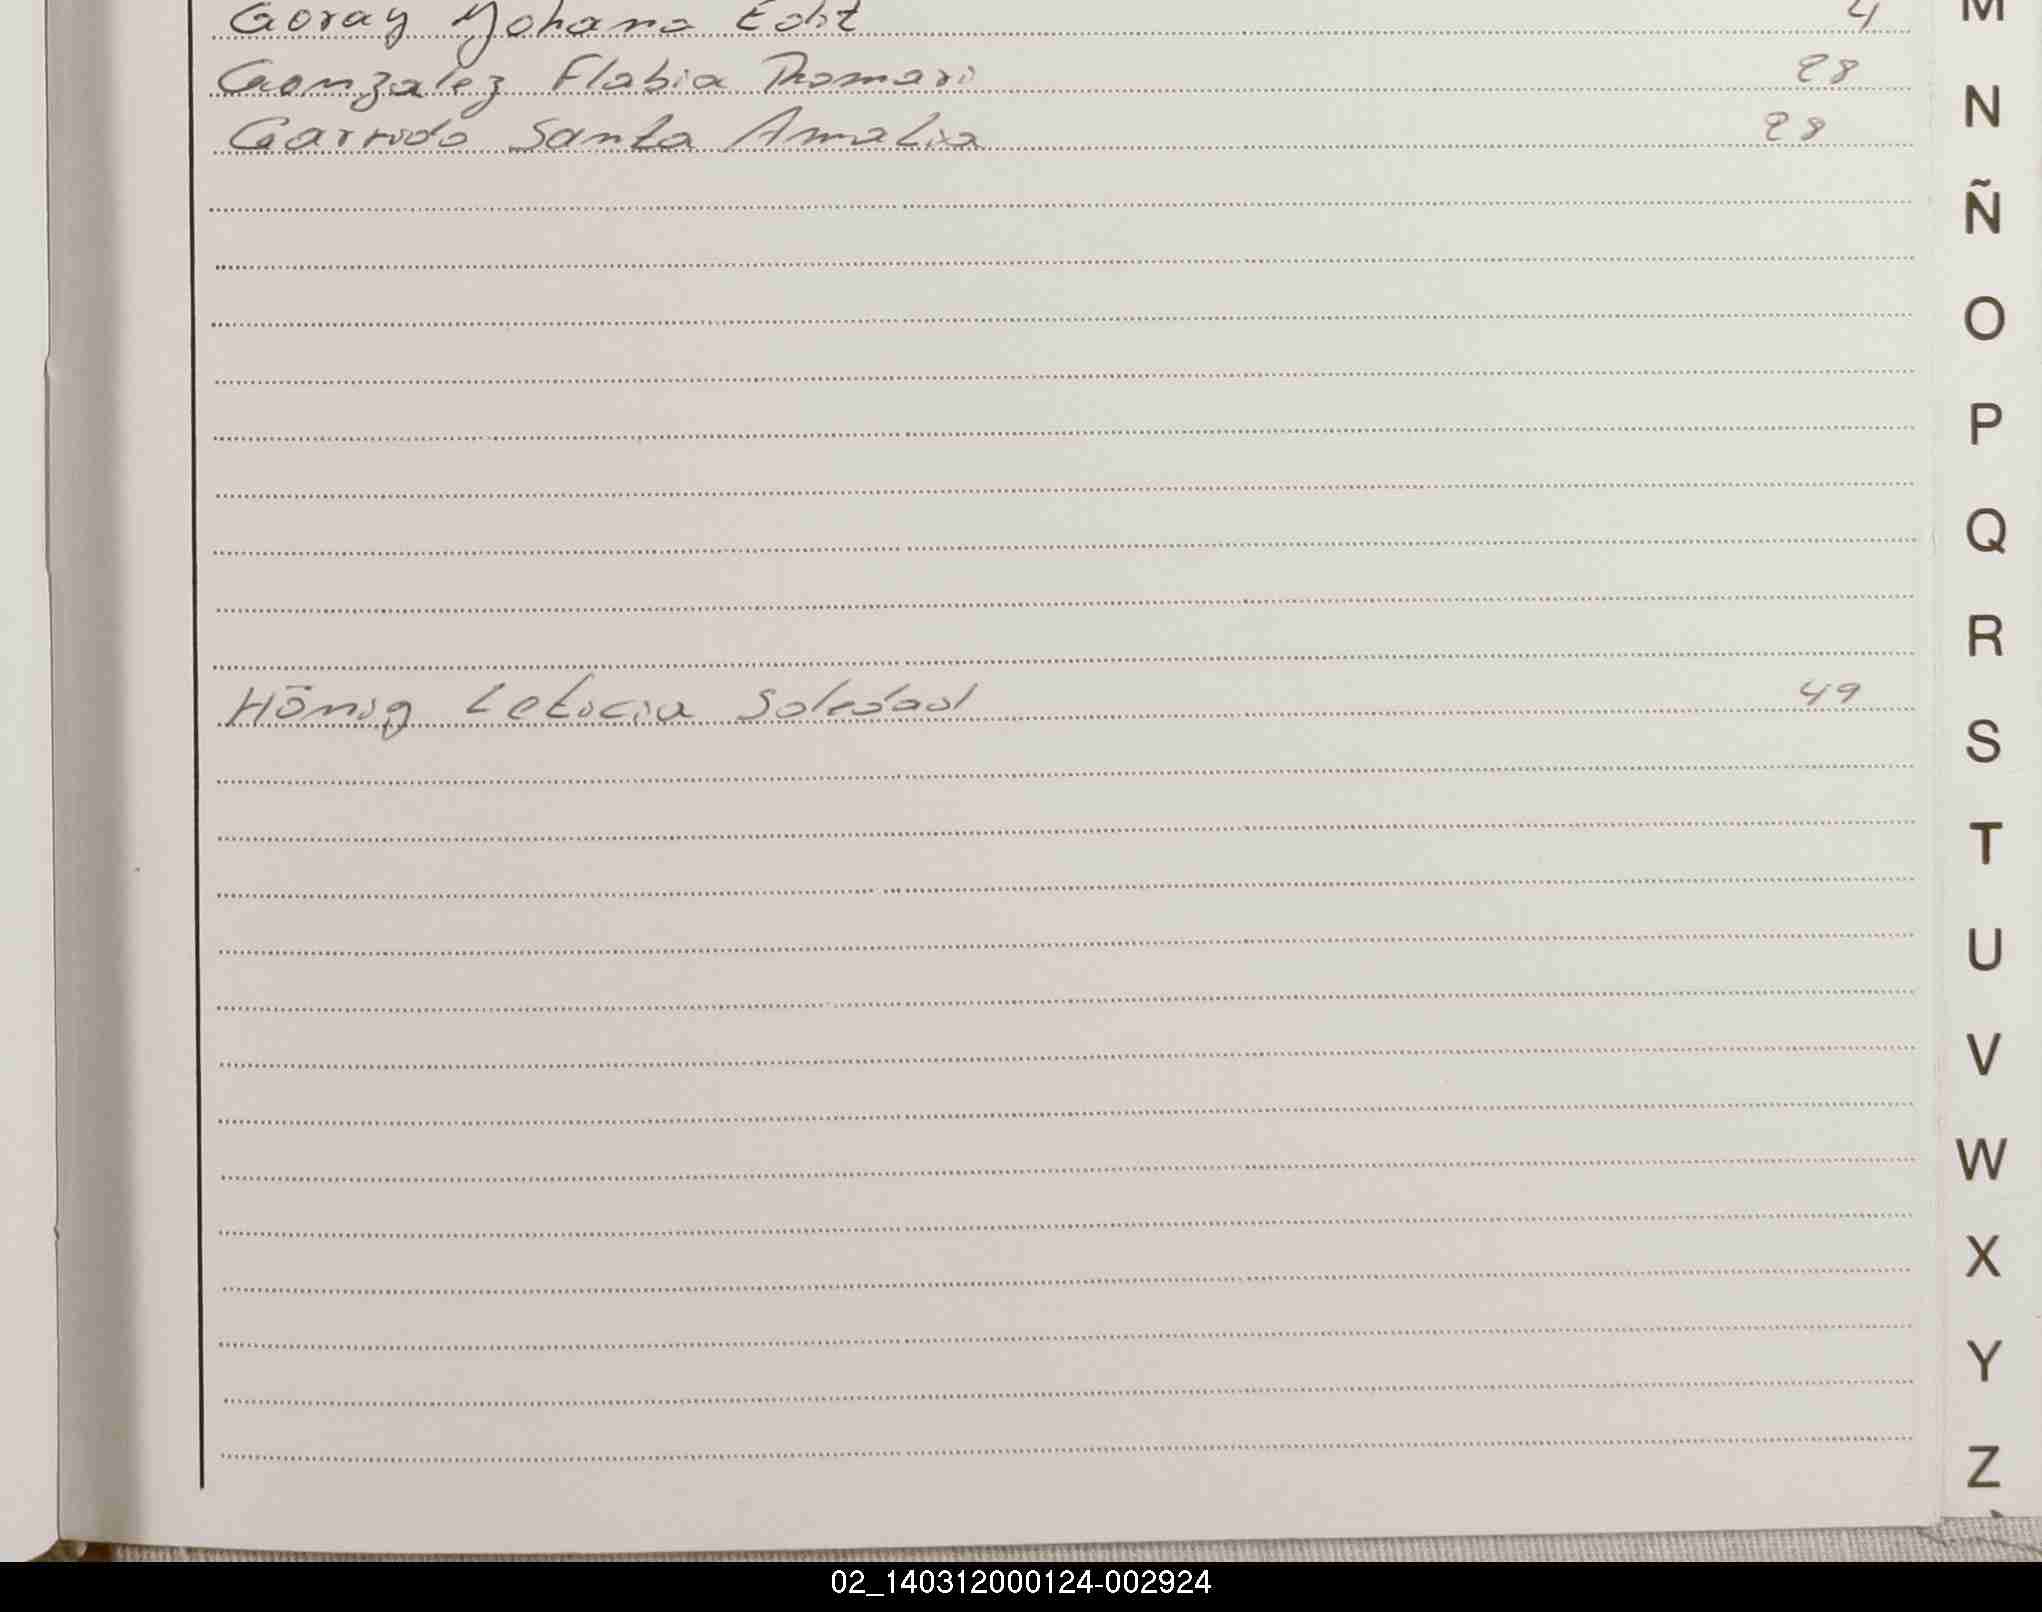 Goray Yohana Edit 4
Gonzalez Flabia Thamari 28
Garrido Santa Amalia 28
Hönig Leticia Soledad 49
M
N
Ñ
O
P
Q
R
S
T
U
V
W
X
Y
Z
02_140312000124-002924